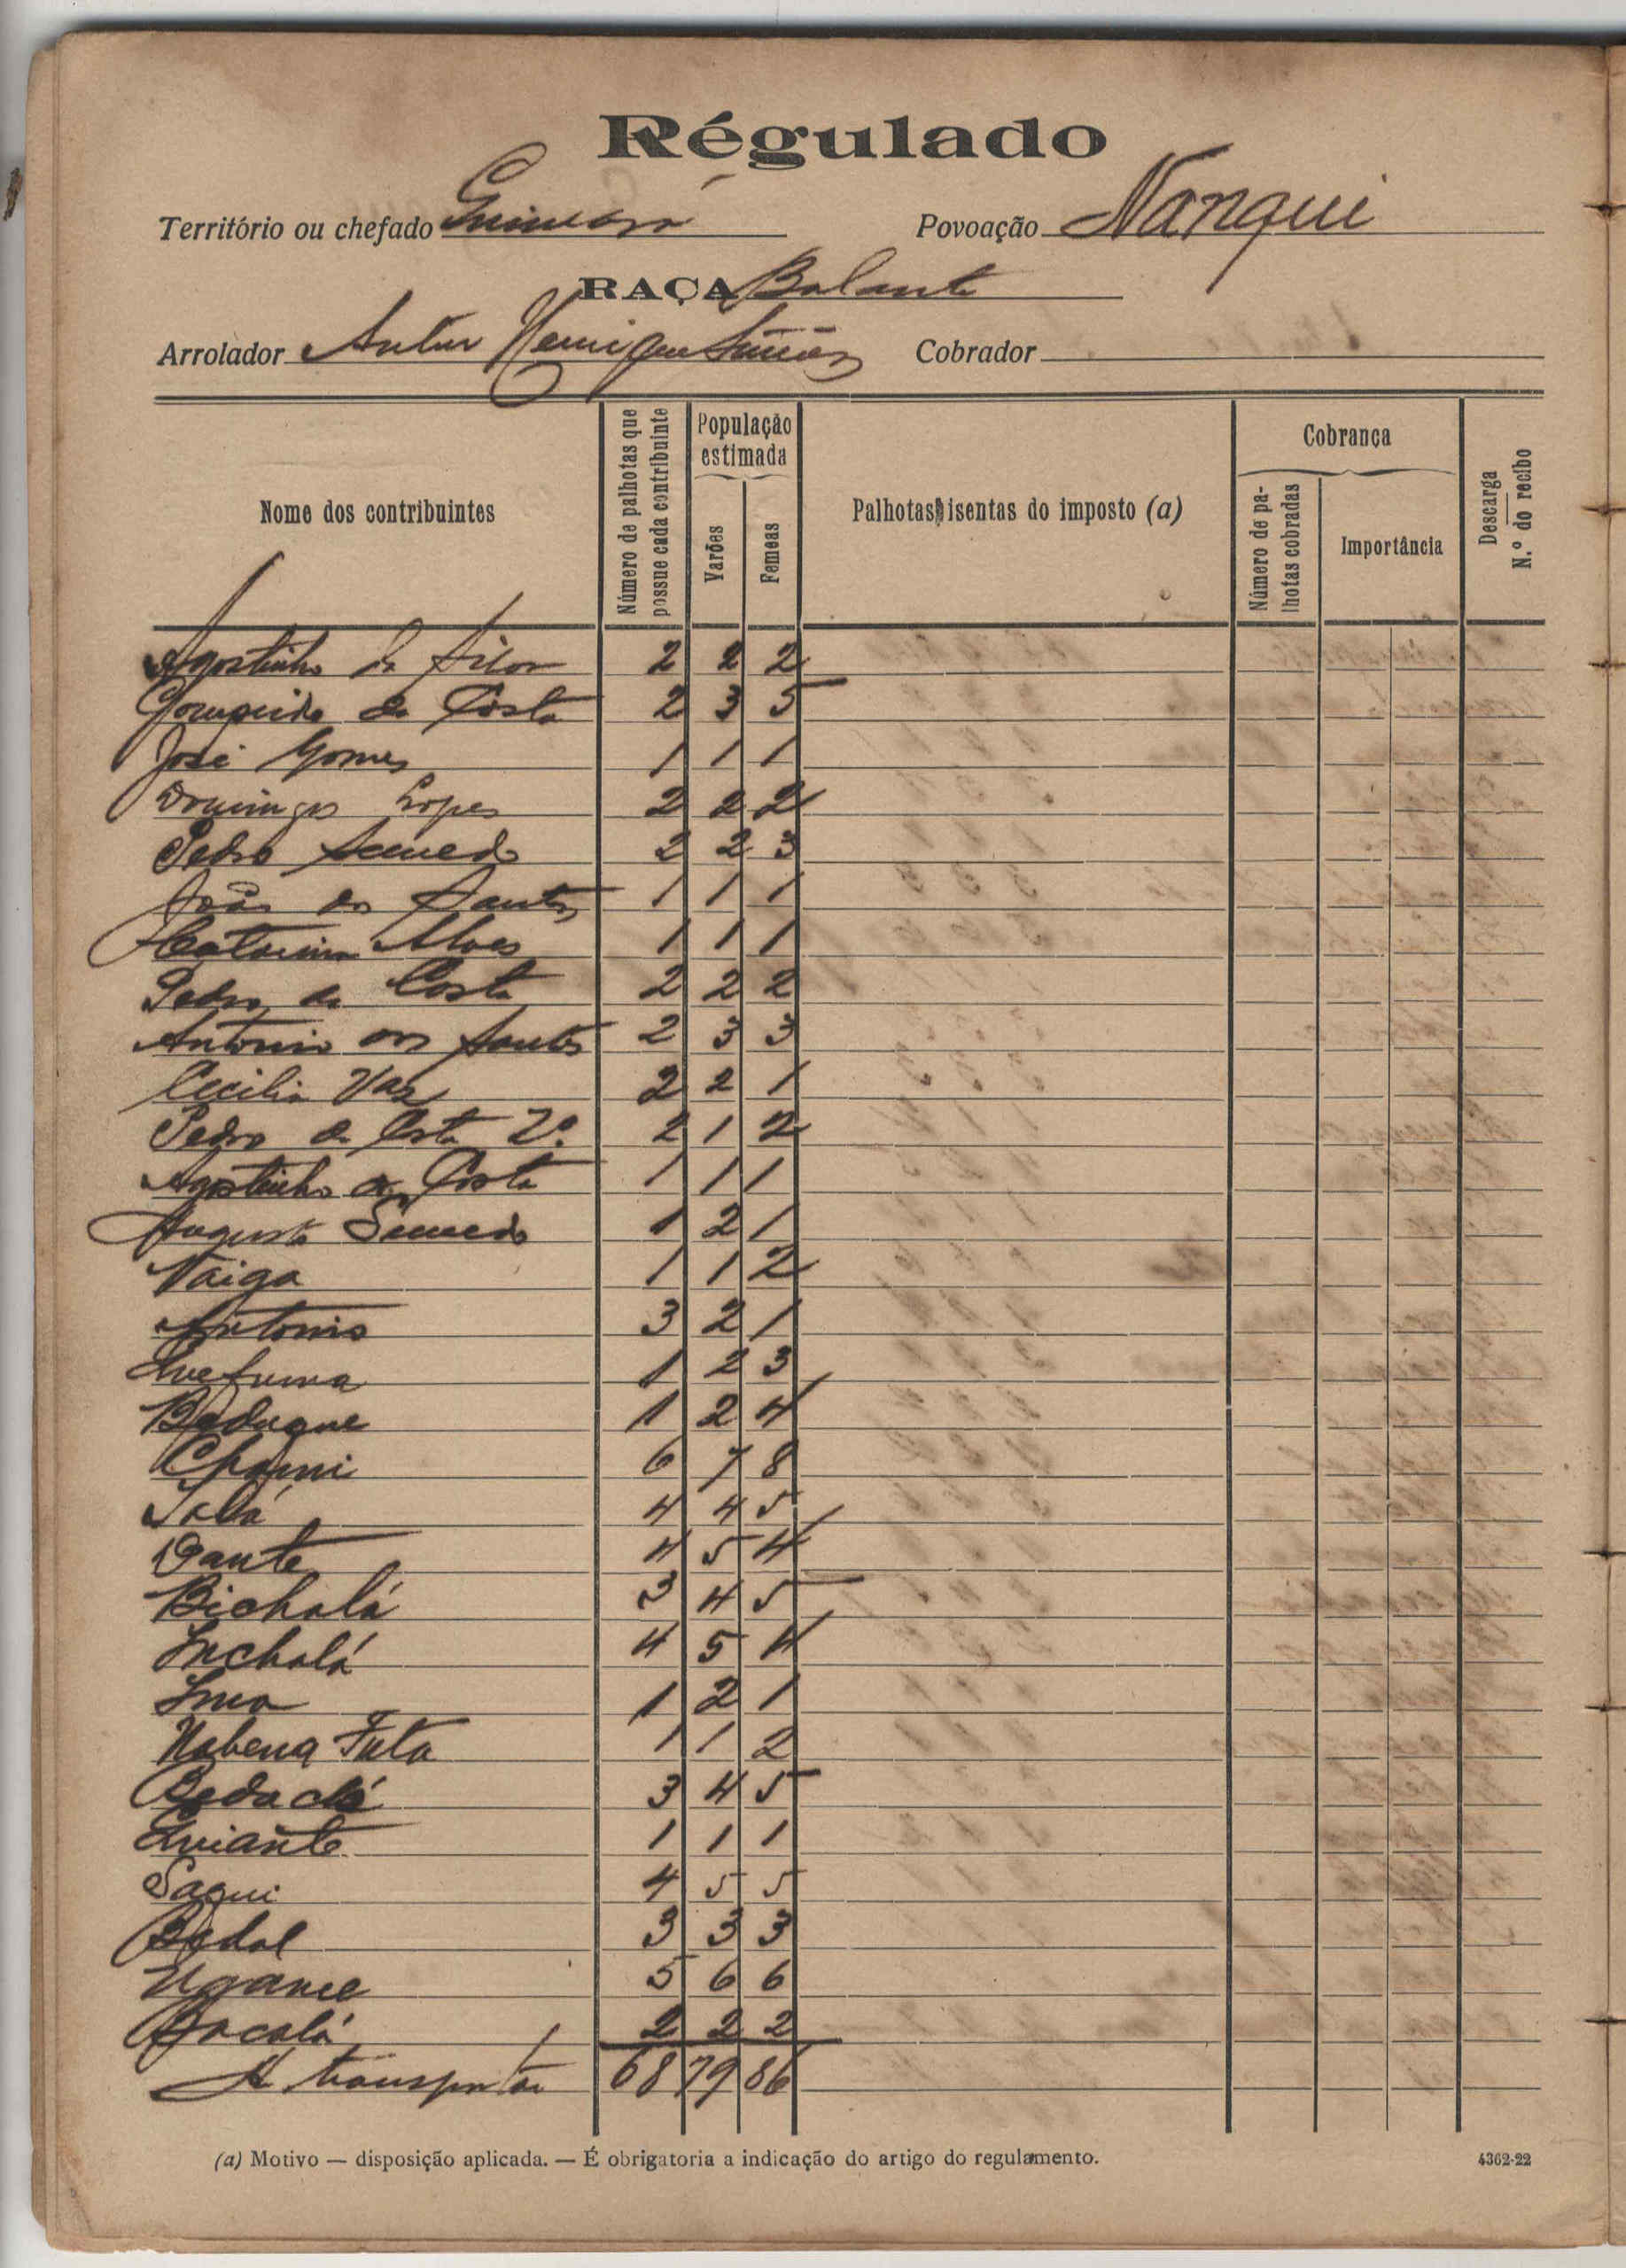 Régulado
Território ou chefado Povoação Nanqui
RAÇA Balanta
Arrolador Artur Henrique Cobrador
Nome dos contribuintes
Número de palhotas que possue cada contribuinte
População estimada
Varões
Femeas
Palhotas isentas do imposto (a)
Cobrança
Número de pa-
lhotas cobradas
Importância
Descarga
N.º do recibo
Agostinho da Silva 2 2 2
da Costa 2 3 5
José Gomes 1 1 1
Domingos Lopes 2 2 2
Pedro Semedo 2 2 3
João dos Santos 1 1 1
Catarina Alves 1 1 1
Pedro da Costa 2 2 2
Antonio dos Santos 2 3 3
Cecilia Vaz 2 2 1
Pedro da Costa 2º 2 1 2
Agostinho da Costa 1 1 1
Augusto Semedo 1 2 1
Naiga 1 1 2
Antonio 3 2 1
1 2 3
Beduque 1 2 4
6 7 8
4 4 5
Dante 4 5 4
Bichalá 3 4 5
Inchalá 4 5 4
1 2 1
Nabena Futa 1 1 2
3 4 5
1 1 1
Saqui 4 5 5
Bedal 3 3 3
5 6 6
2 2 2
A transportar 68 79 86
(a) Motivo — disposição aplicada. — É obrigatoria a indicação do artigo do regulamento. 4362-22